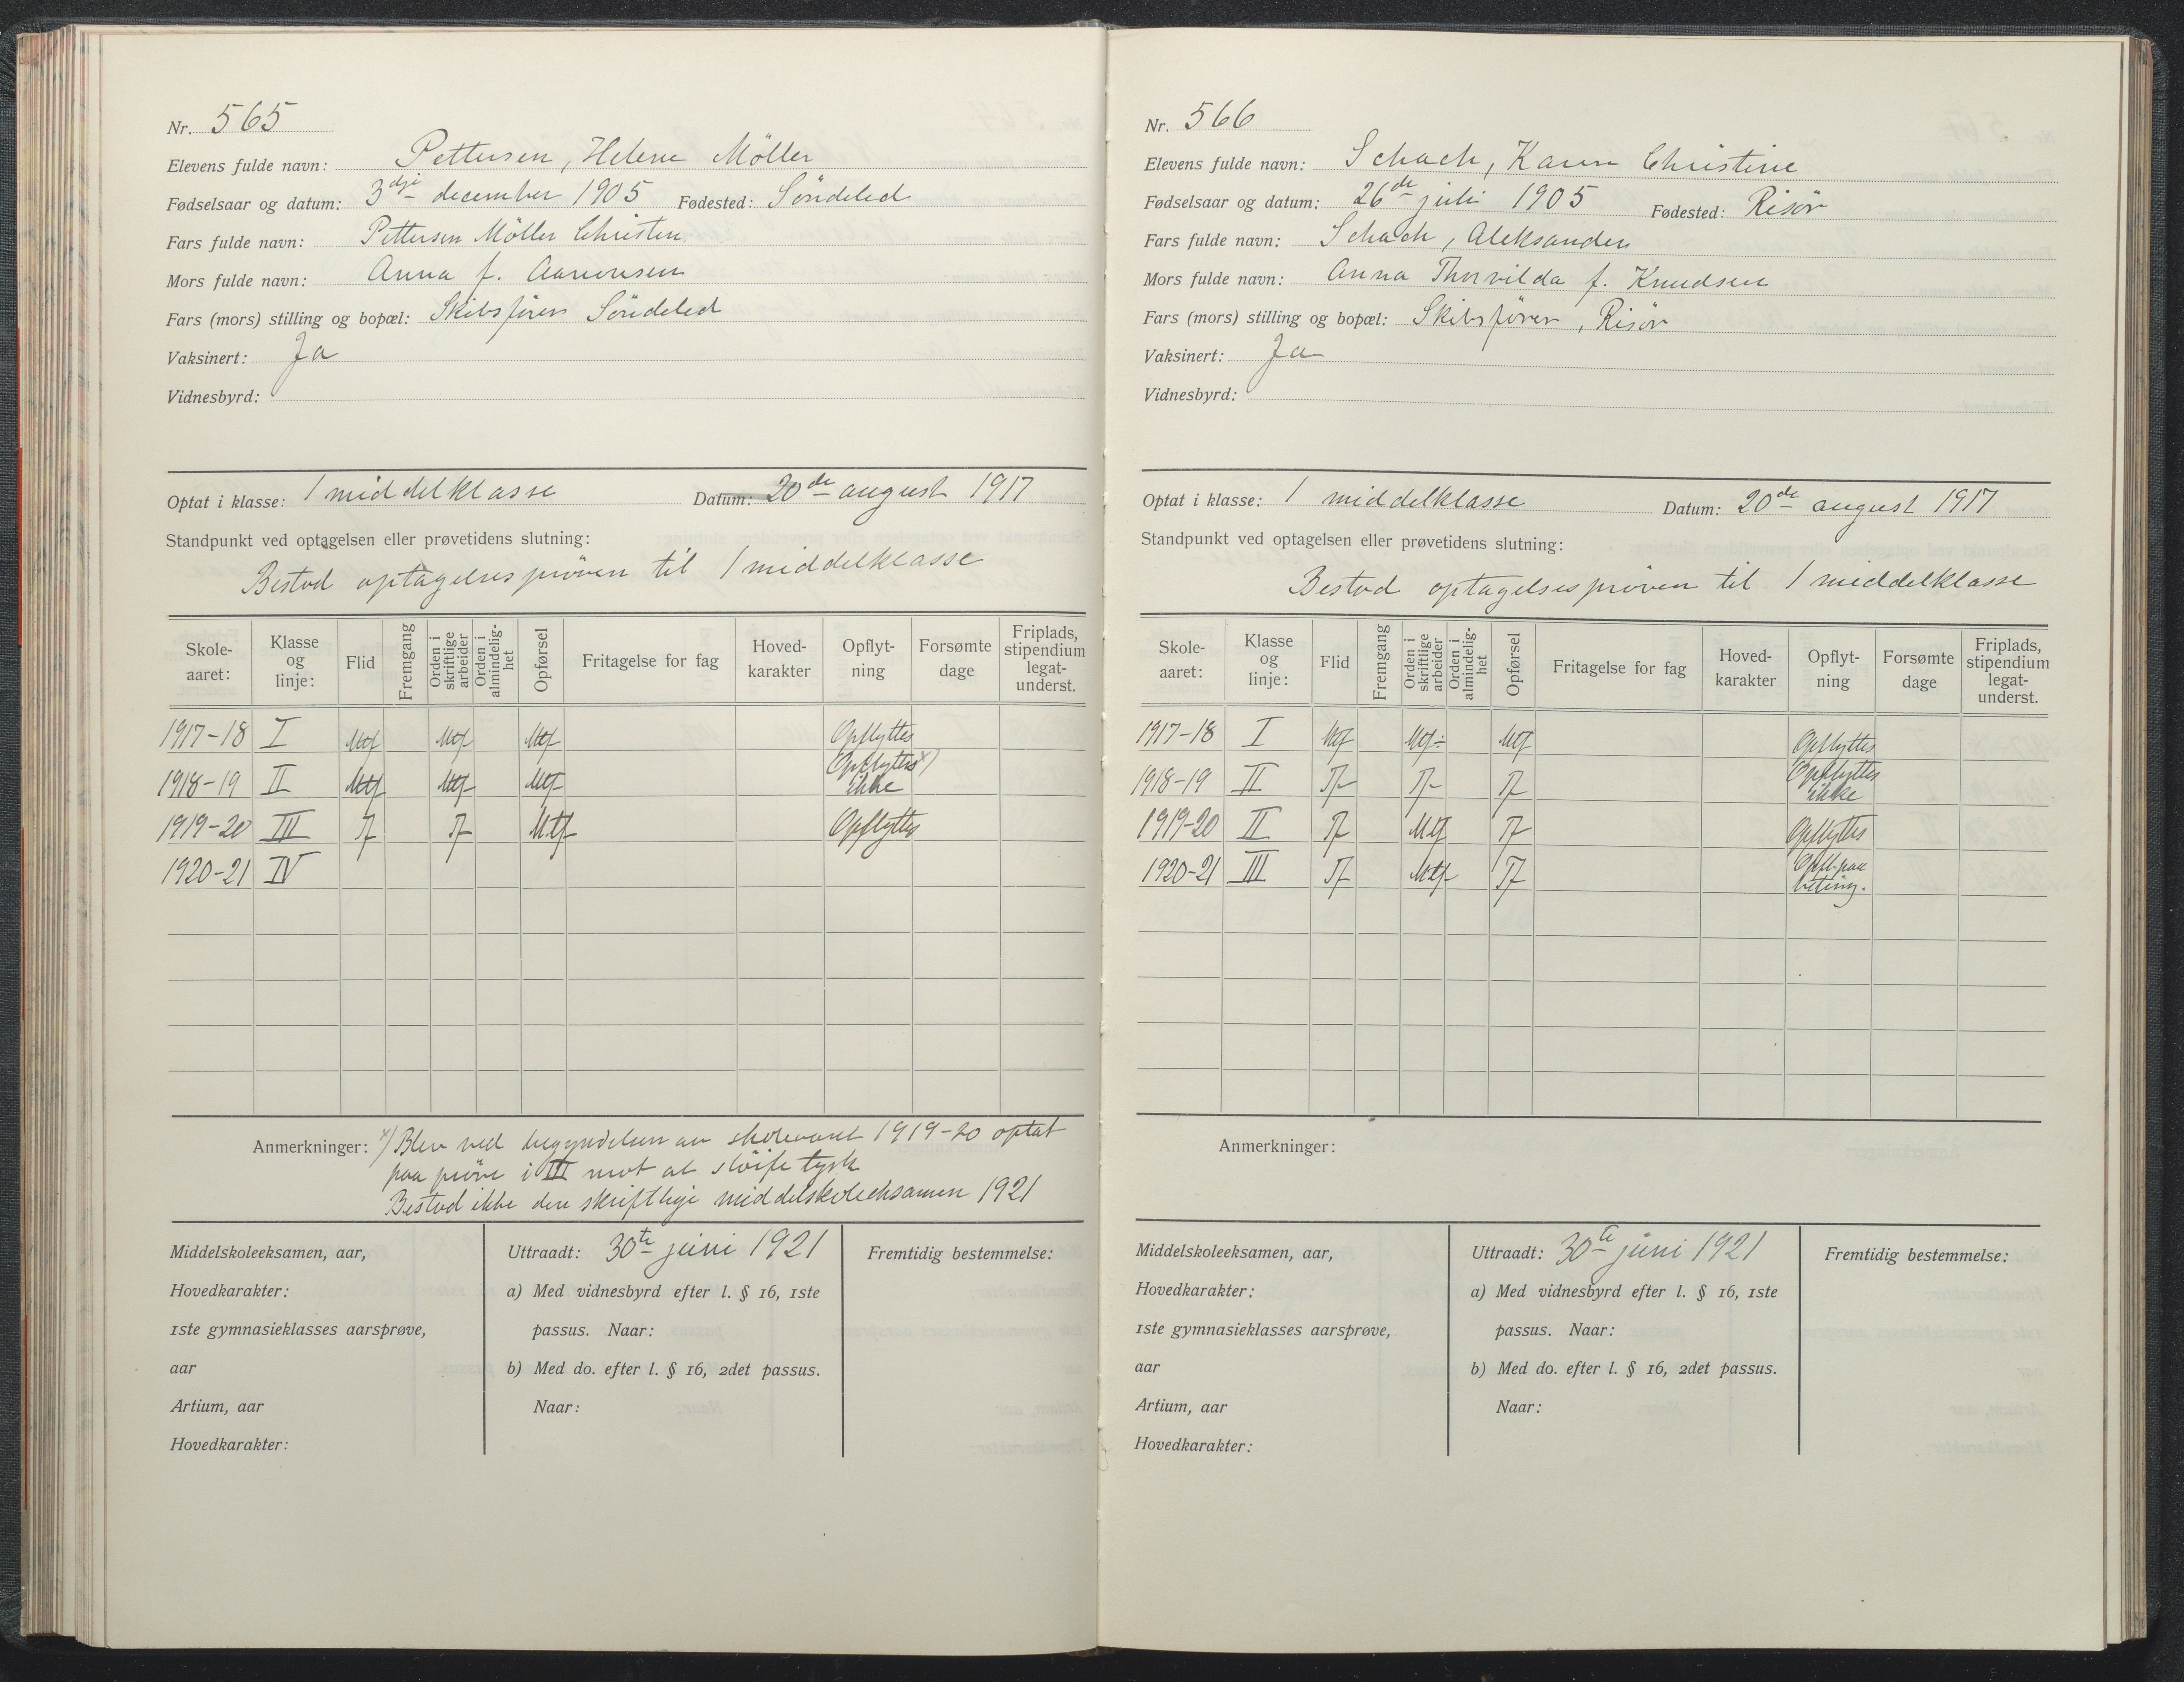 Nr. 565
Elevens fulde navn: Pettersen, Helene Möller
Fødselsaar og datum: 3dje december 1905 Fødested: Söndeled
Fars fulde navn: Pettersen Möller Christen
Mors fulde navn: Anna f. Aanonsen
Fars (mors) stilling og bopæl: Skibsförer Söndeled
Vaksinert: Ja
Vidnesbyrd:
Optat i klasse: 1 middelklasse Datum: 20de august 1917
Standpunkt ved optagelsen eller prøvetidens slutning:
Bestod optagelsespröven til 1 middelklasse
Skole-aaret: Klasse og linje: Flid Fremgang Orden i skriftlige arbeider Orden i almindelig-het Opførsel Fritagelse for fag Hoved-karakter Opflyt-ning Forsømte dage Friplads, stipendium legat-underst.
1917-18 I Mtf Mtf Mtf Opflyttes
1918-19 II Mtf Mtf Mtf Opflyttes x) ikke
1919-20 III Tf Tf Mtf Opflyttes
1920-21 IV
Anmerkninger: x) Blev ved begyndelsen av skoleaaret 1919-20 optat
paa pröve i III mot at slöife tysk
Bestod ikke den skriftlige middelskoleeksamen 1921
Middelskoleeksamen, aar,
Hovedkarakter:
1ste gymnasieklasses aarsprøve,
aar
Artium, aar
Hovedkarakter:
Uttraadt: 30te juni 1921
a) Med vidnesbyrd efter l. § 16, 1ste
passus. Naar:
b) Med do. efter l. § 16, 2det passus.
Naar:
Fremtidig bestemmelse:
Nr. 566
Elevens fulde navn: Schach, Karen Christine
Fødselsaar og datum: 26de juli 1905 Fødested: Risör
Fars fulde navn: Schach, Aleksander
Mors fulde navn: Anna Thorvilda f. Knudsen
Fars (mors) stilling og bopæl: Skibsförer, Risör
Vaksinert: Ja
Vidnesbyrd:
Optat i klasse: 1 middelklasse Datum: 20de august 1917
Standpunkt ved optagelsen eller prøvetidens slutning:
Bestod optagelsespröven til 1 middelklasse
Skole-aaret: Klasse og linje: Flid Fremgang Orden i skriftlige arbeider Orden i almindelig-het Opførsel Fritagelse for fag Hoved-karakter Opflyt-ning Forsømte dage Friplads, stipendium legat-underst.
1917-18 I Mtf Mtf÷ Mtf Opflyttes
1918-19 II Tf Tf Tf Opflyttes ikke
1919-20 II Tf Mtf Tf Opflyttes
1920-21 III Tf Mtf Tf Opfl. paa beting.
Anmerkninger:
Middelskoleeksamen, aar,
Hovedkarakter:
1ste gymnasieklasses aarsprøve,
aar
Artium, aar
Hovedkarakter:
Uttraadt: 30te juni 1921
a) Med vidnesbyrd efter l. § 16, 1ste
passus. Naar:
b) Med do. efter l. § 16, 2det passus.
Naar:
Fremtidig bestemmelse: